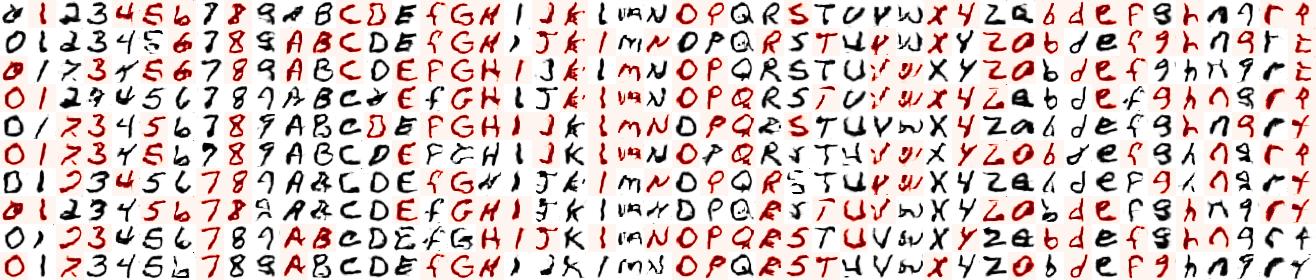 0 1 2 3 4 5 6 7 8 9 A B C D E f G H I J K l m N O P Q R S T U V W X Y Z a b d e f g h n q r t
0 1 2 3 4 5 6 7 8 9 A B C D E f G H I J K l m N O P Q R S T U V W X Y Z a b d e f g h n q r t
0 1 2 3 4 5 6 7 8 9 A B C D E F G H I J K l m N O P Q R S T U V W X Y Z a b d e f g h n q r t
0 1 2 3 4 5 6 7 8 9 A B C d E f G H I J K l m N O P Q R S T U V W X Y Z a b d e f g h n q r t
0 1 2 3 4 5 6 7 8 9 A B C D E F G H I J K l m N O P Q R S T U V W X Y Z a b d e f g h n q r t
0 1 2 3 4 5 6 7 8 9 A B C D E F G H I J K l m N O P Q R S T U V W X Y Z a b d e f g h n q r t
0 1 2 3 4 5 6 7 8 9 A B C D E f G H I J K l m N O P Q R S T U V W X Y Z a b d e F g h n q r t
0 1 2 3 4 5 6 7 8 9 A B C D E f G H I J K l m N O P Q R S T U V W X Y Z a b d e f g h n q r t
0 1 2 3 4 5 6 7 8 9 A B C D E f G H I J K l m N O P Q R S T U V W X Y Z a b d e f g h n q r t
0 1 2 3 4 5 6 7 8 9 A B C D E f G H I J K l m N O P Q R S T U V W X Y Z a b d e f g h n q r t